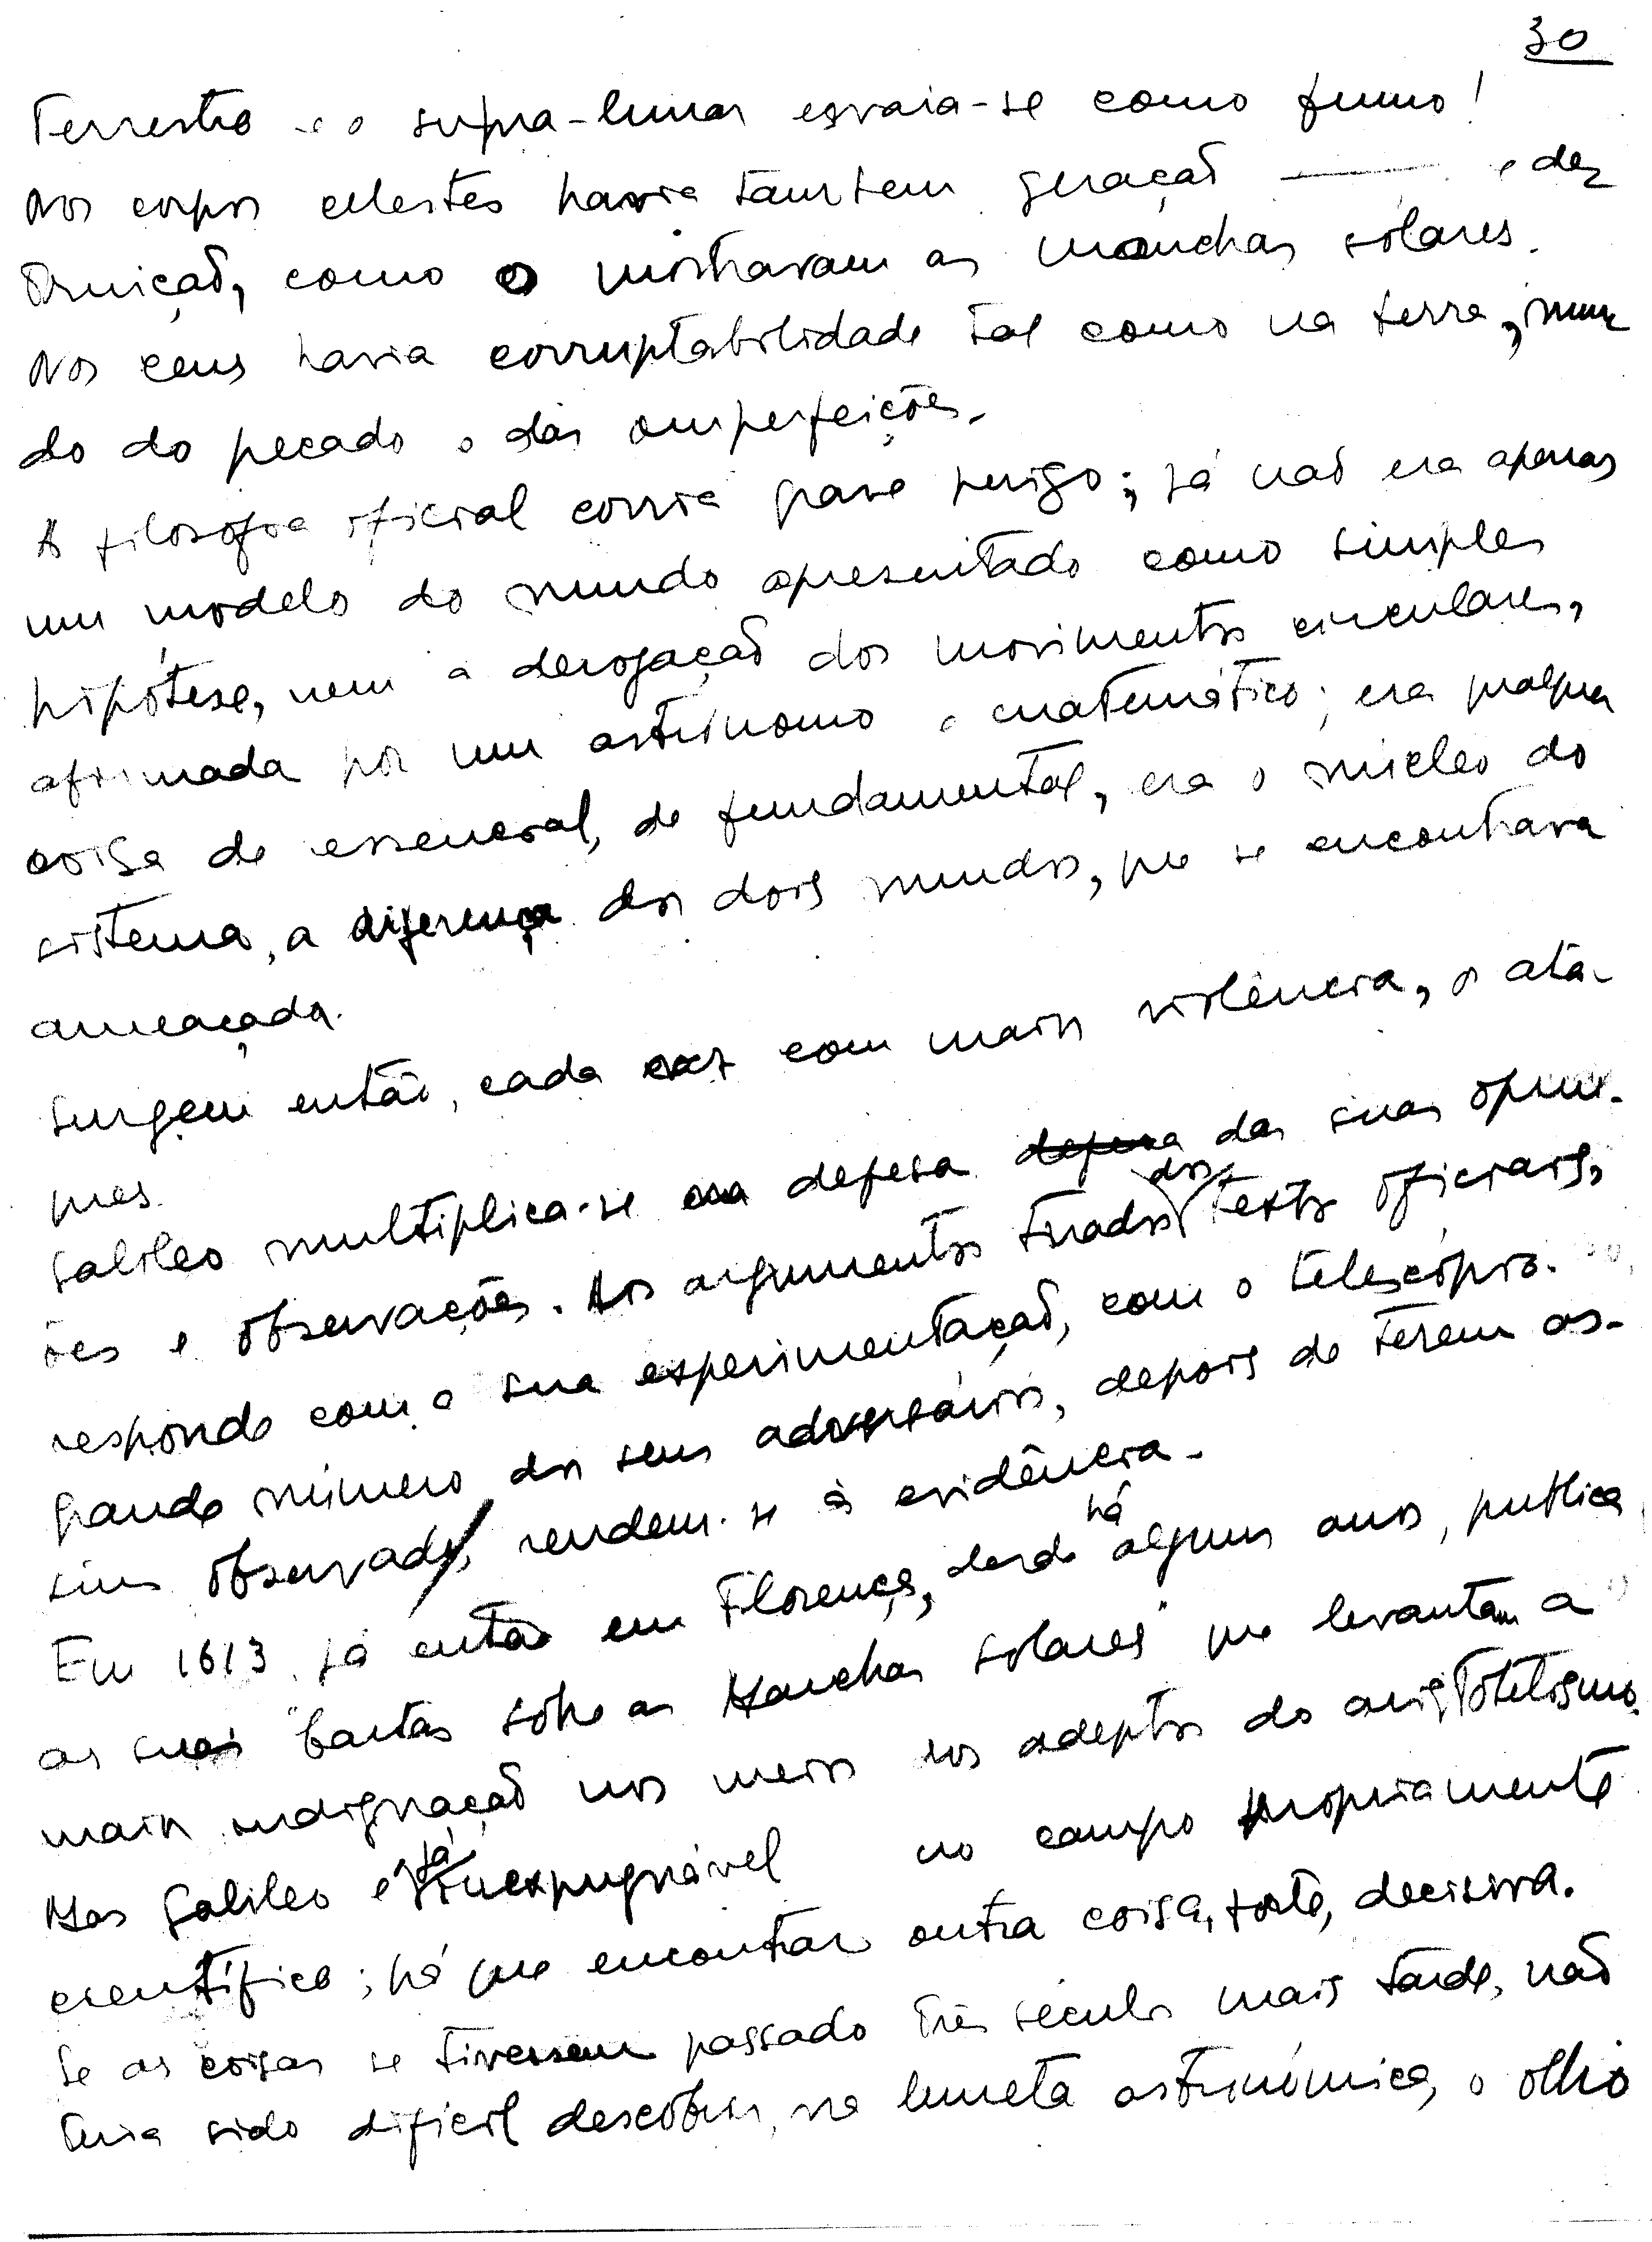 30
Terrestre e o supra-lunar esvaia-se como fumo!
Nos corpos celestes havia também geração — e des
truição, como o mostravam as manchas solares.
Nos céus havia corruptabilidade tal como na terra, mun
do do pecado e das imperfeições.
A filosofia oficial corria grave perigo; já não era apenas
um modelo do mundo apresentado como simples
hipótese, nem a derogação dos movimentos circulares,
afirmada por um astrónomo e matemático; era qualquer
coisa de essencial, de fundamental, era o núcleo do
sistema, a diferença dos dois mundos, que se encontrava
ameaçada.
Surgem então, cada vez com mais violência, os ata-
ques.
Galileo multiplica-se na defesa defesa das suas opini-
ões e observações. Aos argumentos tirados dos textos oficiais,
responde com a sua experimentação, com o telescópio.
Grande número dos seus adversários, depois de terem as-
sim observado, rendem-se à evidência.
Em 1613, já então em Florença, desde há alguns anos, publica
as suas "Cartas sobre as Manchas solares" que levantam a
maior indignação nos meios dos adeptos do aristotelismo.
Mas Galileo é já inexpugnável no campo propriamente
científico; há que encontrar outra coisa, forte, decisiva.
Se as coisas se tivessem passado três séculos mais tarde, não
teria sido difícil descobrir, na luneta astronómica, o olho